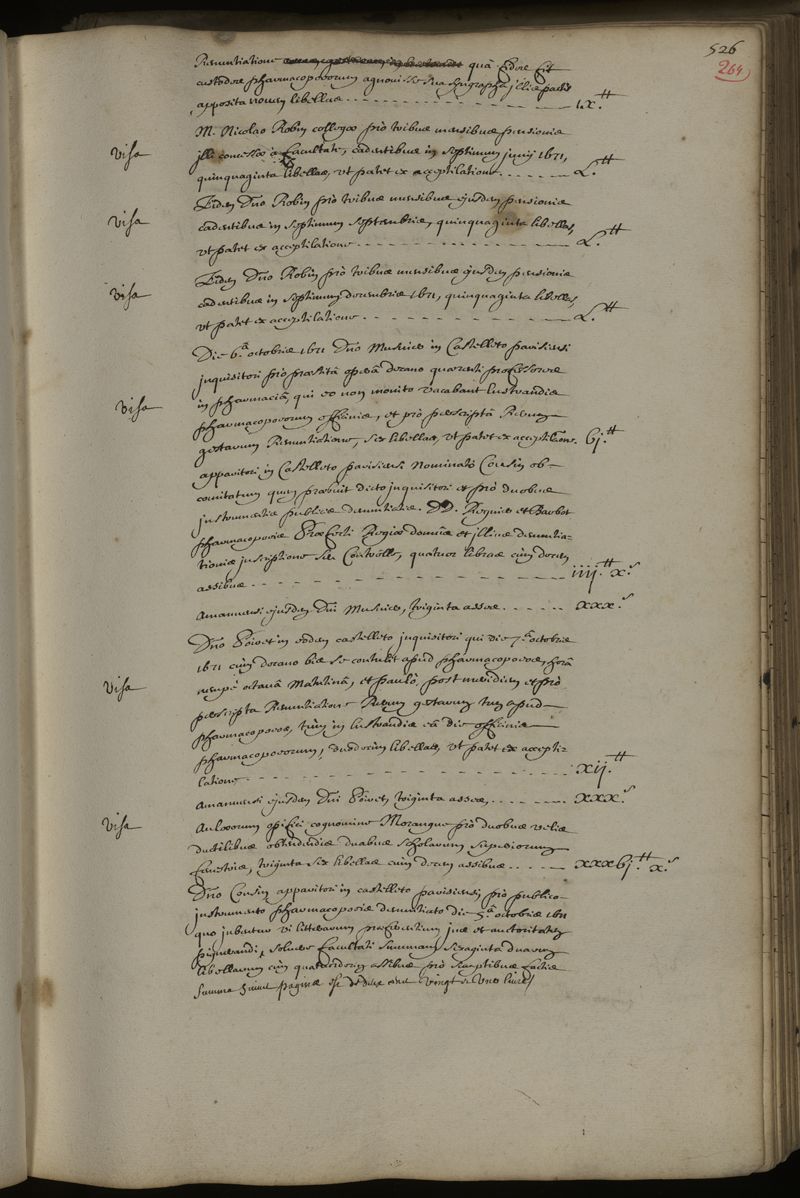 526
264
Renuntiatione quâ
custodae pharmacopoeorum agnovisse sua syngrapha illic
apposita novem libellae ix.tt
M. Nicolao Robin collegae pro tribus mensibus pensionis
visa
illi concessae a Facultate, cadentibus in septimum junij 1671,
quinquaginta libellae, ut patet ex acceptilatione L.tt
Eidem Dno Robin pro tribus mensibus ejusdem pensionis
visa
cadentibus in septimum septembris, quinquaginta libellas,
ut patet ex acceptilatione L.tt
Eidem Dno Robin pro tribus mensibus ejusdem pensionis
visa
cadentibus in septimum decembris 1671, quinquaginta libellas,
ut patet ex acceptilatione L.tt
Die 6.a octobris 1671 Dno Musnier in Castelleto parisiensi
inquisitori pro praestita opera decano quaerenti professores
in pharmacia, qui eo non monito vacabant lustrandis
visa
pharmacopoeorum officinis, et pro perscripta Rerum
gestarum Renuntiatione, sex libellas, ut patet ex acceptilatione. bj.tt
apparitori in Castelleto parisiensi nominato Cousin ob
comitatum quem praebuit dicto inquisitori et pro duobus
instrumentis publicis denuntiatis. DD. Regnier et Barbot
pharmacopoeis Praefecti Regiae domus et illius denuntia-
tionis inscriptione seu Controlle, quatuor libras cum decem
assibus iiij.tt x.s
amanuensi ejusdem Dni Musnier, triginta asses. xxx.s
Dno Poivet in eodem castelleto inquisitori qui die 7.a octobris
1671 cum decano bis se contulit apud pharmacopoeos, horâ
visa
nempe octavâ matutinâ, et paulò post meridiem et pro
perscripta Renuntiatione Rerum gestarum tum apud
pharmacopoeos, tum in lustrandis eâ die officinis
pharmacopoeorum, duodecim libellas, ut patet ex accepti-
latione xij.tt
amanuensi ejusdem Dni Poivet, triginta asses, xxx.s
visa
Aulaeorum opifici cognomine Morangue pro duobus velis
ductilibus obtendendis duabus scholarum superiorum
fenestris, triginta sex libellae cum decem assibus xxxbj.tt x.s
Dno Cousin apparitori in castelleto parisiensi, pro publico
instrumento pharmacopoeis denuntiato die 5.a octobris 1671
quo jubentur vi litterarum jus et auctoritatem
solvere Facultati summam sexaginta duarum
libellarum cum quatuordecim assibus pro sumptibus factis
Summa paginae est de deux cent vingt et une livres